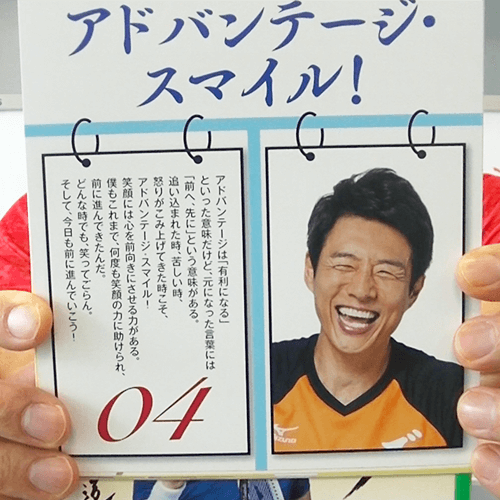 アドバンテージ・
スマイル！
アドバンテージは「有利になる」
といった意味だけど、元になった言葉には
「前へ、先に」という意味がある。
追い込まれた時、苦しい時、
怒りがこみ上げてきた時こそ、
アドバンテージ・スマイル！
笑顔には心を前向きにさせる力がある。
僕もこれまで、何度も笑顔の力に助けられ、
前に進んできたんだ。
どんな時でも、笑ってごらん。
そして、今日も前に進んでいこう！
04